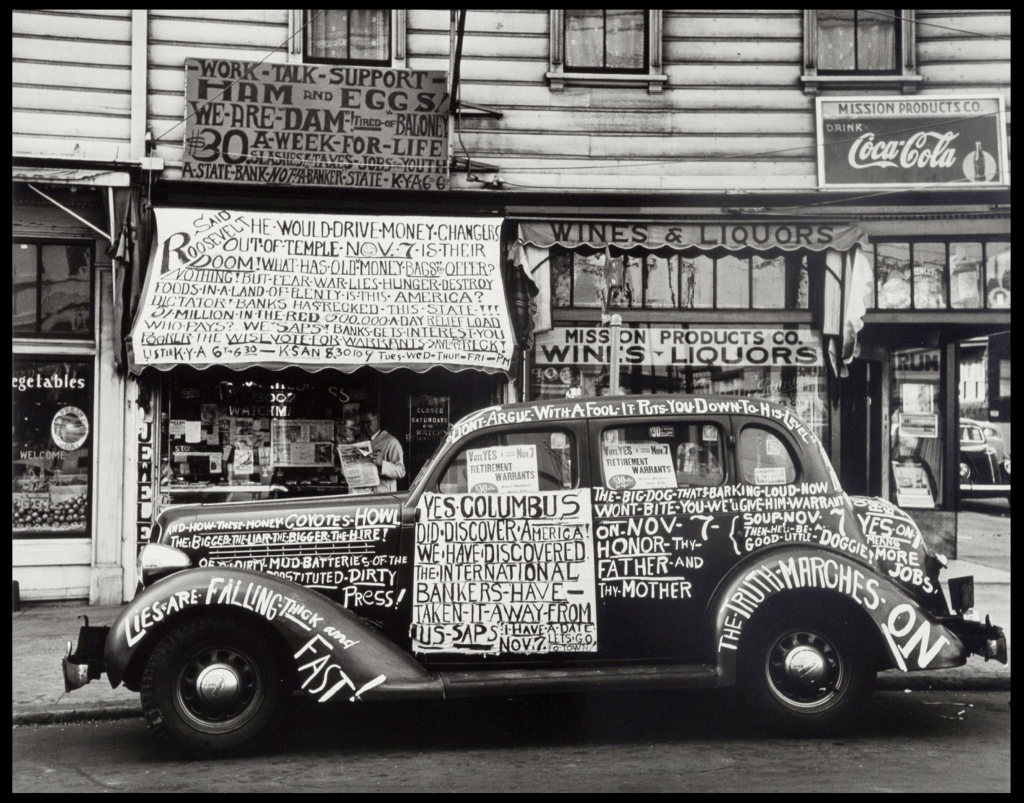 WORK-TALK-SUPPORT-
HAM AND EGGS!
WE-ARE-DAM-TIRED-OF-BALONEY
$30 A-WEEK-FOR-LIFE
SLASHES-TAXES-JOBS-YOUTH
A-STATE-BANK-NOT-A-BANKER-STATE-K-Y-A 6
MISSION PRODUCTS CO.
DRINK
Coca-Cola
SAID
ROOSEVELT HE-WOULD-DRIVE-MONEY-CHANGERS
OUT-OF-TEMPLE-NOV. 7-IS-THEIR
DOOM! WHAT-HAS-OLD-MONEY-BAGS-TO-OFFER?
NOTHING! BUT-FEAR-WAR-LIES-HUNGER-DESTROY
FOODS-IN-A-LAND-OF-PLENTY-IS-THIS-AMERICA?
DICTATOR! BANKS HAS WRECKED-THIS-STATE-!!!
MILLION-IN-THE-RED $500,000 A DAY RELIEF LOAD
WHO-PAYS? WE "SAPS" BANKS-REAP-INTEREST-YOU
BE-THE WISE VOTE FOR WARRANTS
LISTEN-K-Y-A 6 K-SAN TUES-WED-THUR-FRI-PM
WINES & LIQUORS
MISSION PRODUCTS CO.
WINES LIQUORS
RUM
egetables
WELCOME
JEWELE
WATCHM
CLOSED
SATURDAYS
"DONT-ARGUE-WITH-A-FOOL-IT PUTS-YOU-DOWN-TO HIS-LEVEL"
VOTE YES Nov. 7
RETIREMENT
WARRANTS
VOTE YES Nov. 7
RETIREMENT
WARRANTS
AND-HOW-THESE-MONEY COYOTES-HOWL
THE, BIGGER-THE-LIAR-THE-BIGGER-THE HIRE!
OF THE DIRTY-MUD-BATTERIES-OF THE
PROSTITUTED-DIRTY
PRESS!
LIES-ARE-FALLING-THICK and
FAST!
YES-COLUMBUS
DID-DISCOVER-AMERICA!
WE-HAVE-DISCOVERED
THE INTERNATIONAL
BANKERS-HAVE-
TAKEN-IT-AWAY-FROM
US-SAPS I-HAVE-A-DATE
NOV. 7 LETS-GO
THE-BIG-DOG-THATS-BARKING-LOUD-NOW
WONT-BITE-YOU-WE'LL GIVE HIM-WARRANT
ON-NOV-7-
HONOR-THY-
FATHER-AND
THY-MOTHER
SOUP NOV. 7
THEN-HE'LL-BE-A
GOOD-LITTLE-DOGGIE
YES-ON 7
MEANS
MORE
JOBS
THE-TRUTH-MARCHES-ON